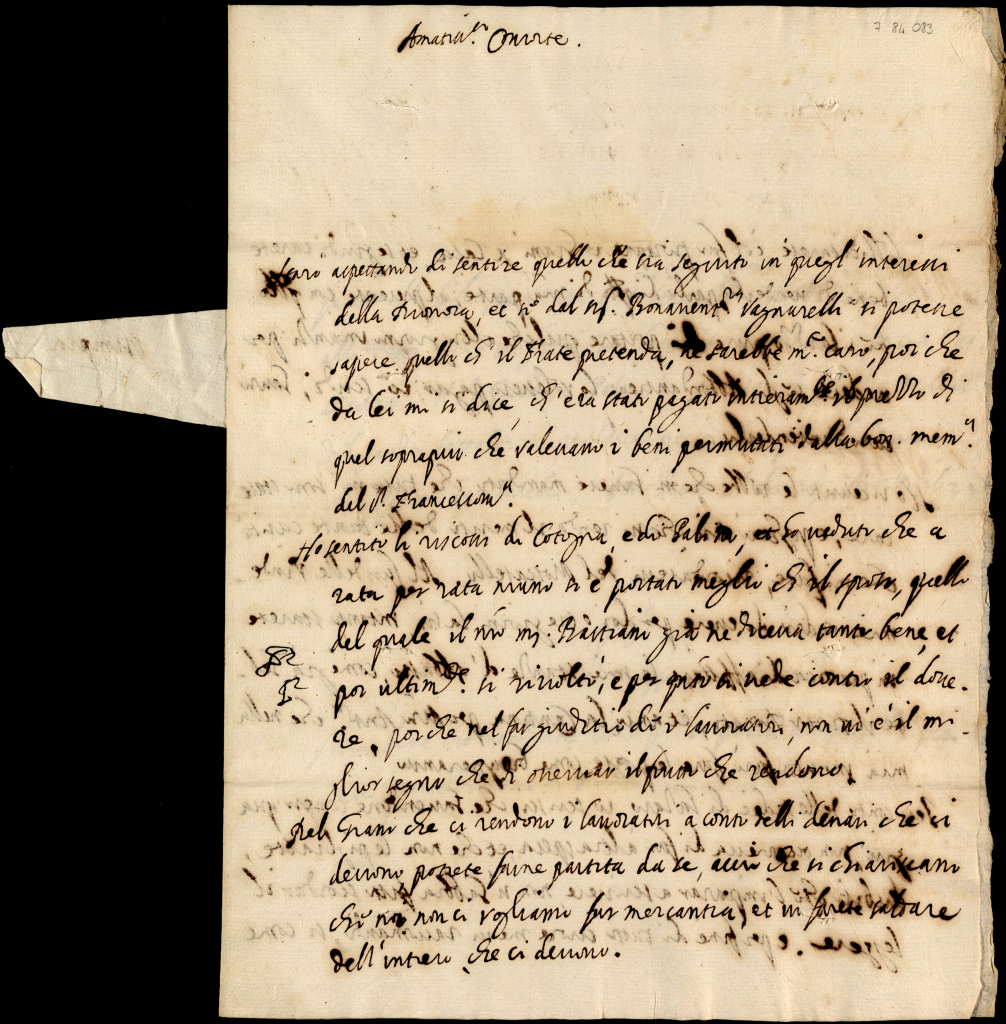 7 84 083
Amatiss.mo Consorte.
starò aspettando di sentire quello che sia seguito in quegl' interessi
della Truonora, et se dal Sig.r Bonavent.ra Vagnarelli si potesse
sapere quello ch' il Frate pretenda, ne sarebbe m.o caro, poi che
da lei mi si dice, ch' era stato pagato intieram.te il prezzo di
quel soprapiù che valevano i beni permutati dalla bon. mem.a
del S.r Francescom.a
Ho sentito li riscossi di Cotogna, e di Palira, et ho veduto che a
rata per rata niuno si è portato meglio ch' il sposo, quello
del quale il nro m. Bastiano già ne diceva tanto bene, et
poi ultim.te si rivoltò, e per q.to si vede contro il dove-
re, poi che nel far giuditio di i lavoratori, non vi è il mi-
glior segno che di osservar il frutto che rendono.
Del Grano che ci rendono i lavoratori a conto delli denari che ci
devono potrete farne partita da se, acciò che si chiariscano
che noi non ci vogliamo far mercantia, et vi farete saldare
dell' intiero che ci devono.